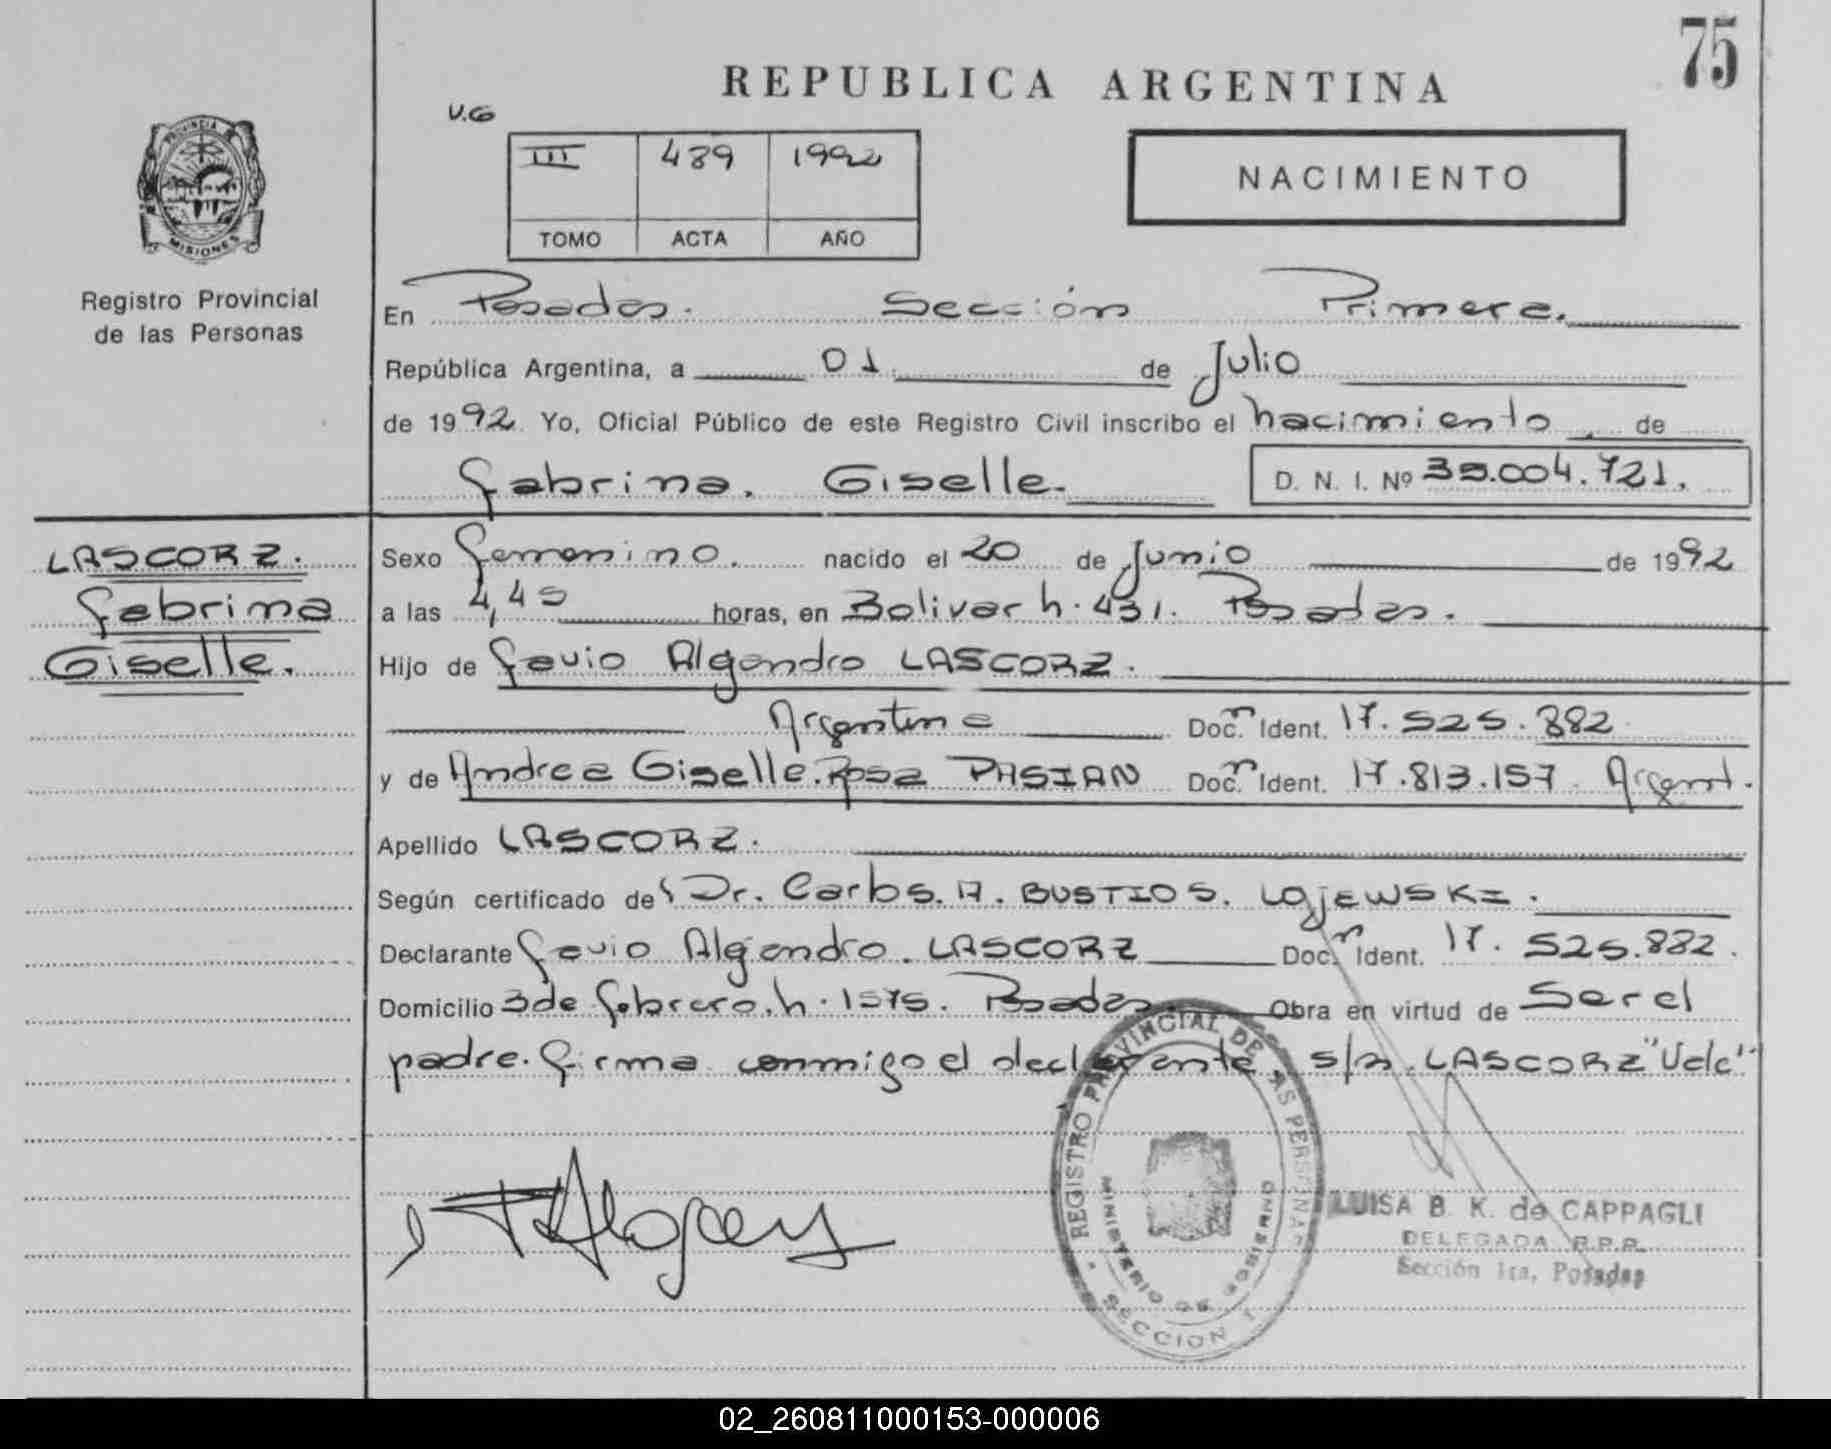 75
REPUBLICA ARGENTINA
V.G
III 489 1992
TOMO ACTA AÑO
NACIMIENTO
PROVINCIA DE
MISIONES
Registro Provincial
de las Personas
En Posadas. Sección Primera.
República Argentina, a 01 de Julio
de 1992 Yo, Oficial Público de este Registro Civil inscribo el nacimiento de
Fabrina. Giselle. D. N. I. Nº .004.721.
LASCORZ. Sexo Femenino. nacido el 20 de Junio de 1992
Fabrina a las 4,45 horas, en Bolivar n. 431. Posadas.
Giselle. Hijo de Favio Alejandro LASCORZ.
Argentina Doc. Ident. 17.525.882
y de Andrea Giselle. Rosa PASIAN Doc. Ident. 17.813.157 Argent.
Apellido LASCORZ.
Según certificado del Dr. Carlos. A. BUSTIOS. LOJEWSKI.
Declarante Favio Alejandro. LASCORZ Doc. Ident. 17. 525.882.
Domicilio 3 de febrero. n. 1575. Posadas. Obra en virtud de Ser el
padre. firma conmigo el declarante. s/r. LASCORZ "Vale"
REGISTRO PROVINCIAL DE LAS PERSONAS
MINISTERIO DE GOBIERNO
SECCION 1
LUISA B. K. de CAPPAGLI
DELEGADA R.P.P.
Sección 1ra, Posadas
02_260811000153-000006